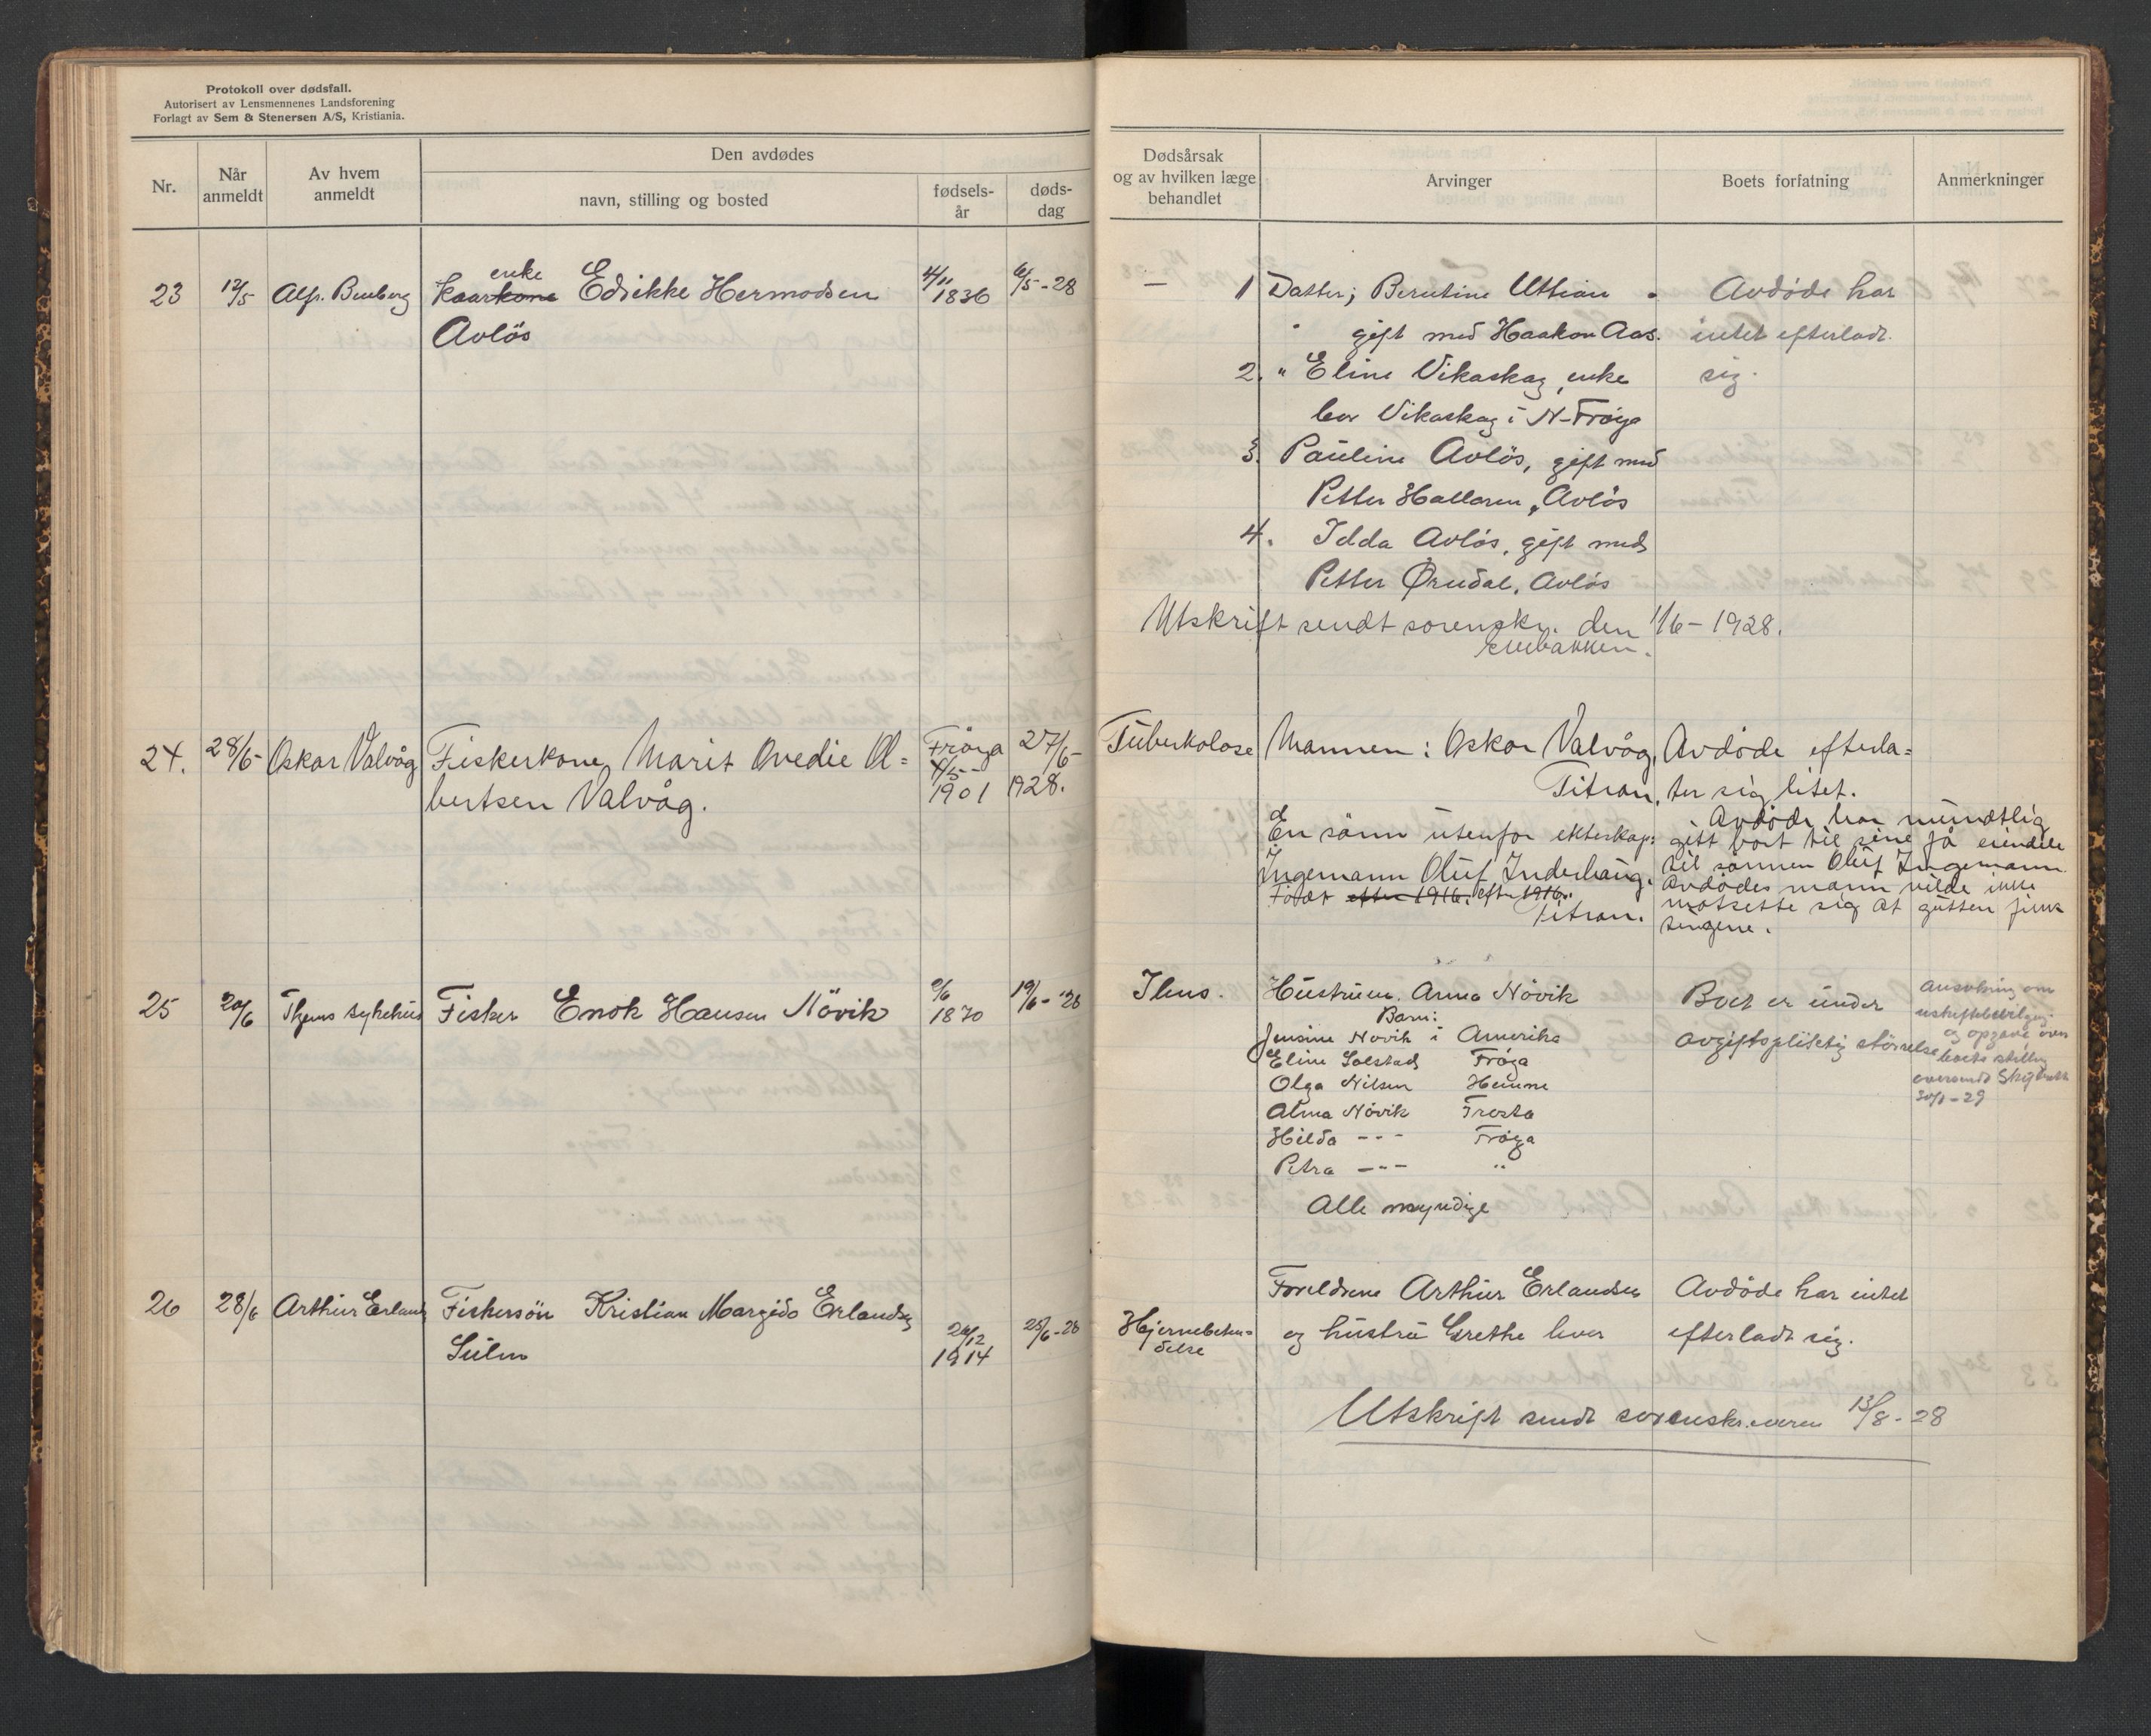 Protokoll over dødsfall.
Autorisert av Lensmennenes Landsforening
Forlagt av Sem & Stenersen A/S, Kristiania.
Nr.
Når anmeldt
Av hvem anmeldt
Den avdødes
navn, stilling og bosted
fødsels-år
døds-dag
Dødsårsak og av hvilken læge behandlet
Arvinger
Boets forfatning
Anmerkninger
23 12/5 Alfr. enke Edrikke Hermodsen 4/11 1836 6/5-28
Avløs
—
1 Datter; Berntine Uttian
gift med Haakon Aas.
2. " Eline Vikaskag, enke
bor Vikaskag i N-Frøya
3. Pauline Avløs, gift med
Petter Hallaren, Avløs
4. Idda Avløs, gift med
Petter Ørndal, Avløs
Avdøde har
intet efterladt
sig.
Utskrift sendt sorenskr. den 1/6-1928.
24. 28/6- Oskar Valvåg Fiskerkone, Marit Ovedie Al=
bertsen Valvåg.
Frøya 4/5- 1901
27/6- 1928.
Tuberkolose
Mannen: Oskar Valvåg,
Titran.
En sønn utenfor ekteskap:
Ingemann Oluf Inderhaug.
Født efter 1916. efter 1916.
Titran.
Avdøde efterla=
ter sig litet.
Avdøde har mundtlig
gitt bort til sine få eiendele
til sønnen Oluf Ingemann
Avdødes mann vilde ikke
motsette sig at gutten fikk
tingene.
25 20/6 Thems sykehus Fisker Enok Hansen Növik 9/6 1870 19/6-'28
Ileus.
Hustruen. Anna Növik
Barn:
Jensine Novik i Amerika
Eline Solstad Frøya
Olga Nilsen Hemne
Alma Növik Frosta
Hilda -"- Frøya
Petra -"- "
Alle myndige
Boet er under
avgiftspliktig størrelse
Ansøkning om
uskiftebevilgn.
og opgave over
boets stilling
oversendt
30/1-29
26 28/6 Arthur Erlands Fiskersøn Kristian Margido Erlandsen
Sulen
26/12 1914
25/6-28
Hjernebeten=
delse
Foreldrene Arthur Erlandsen
og hustru Grethe lever
Avdøde har intet
efterladt sig.
Utskrift sendt sorenskriveren 13/8-28